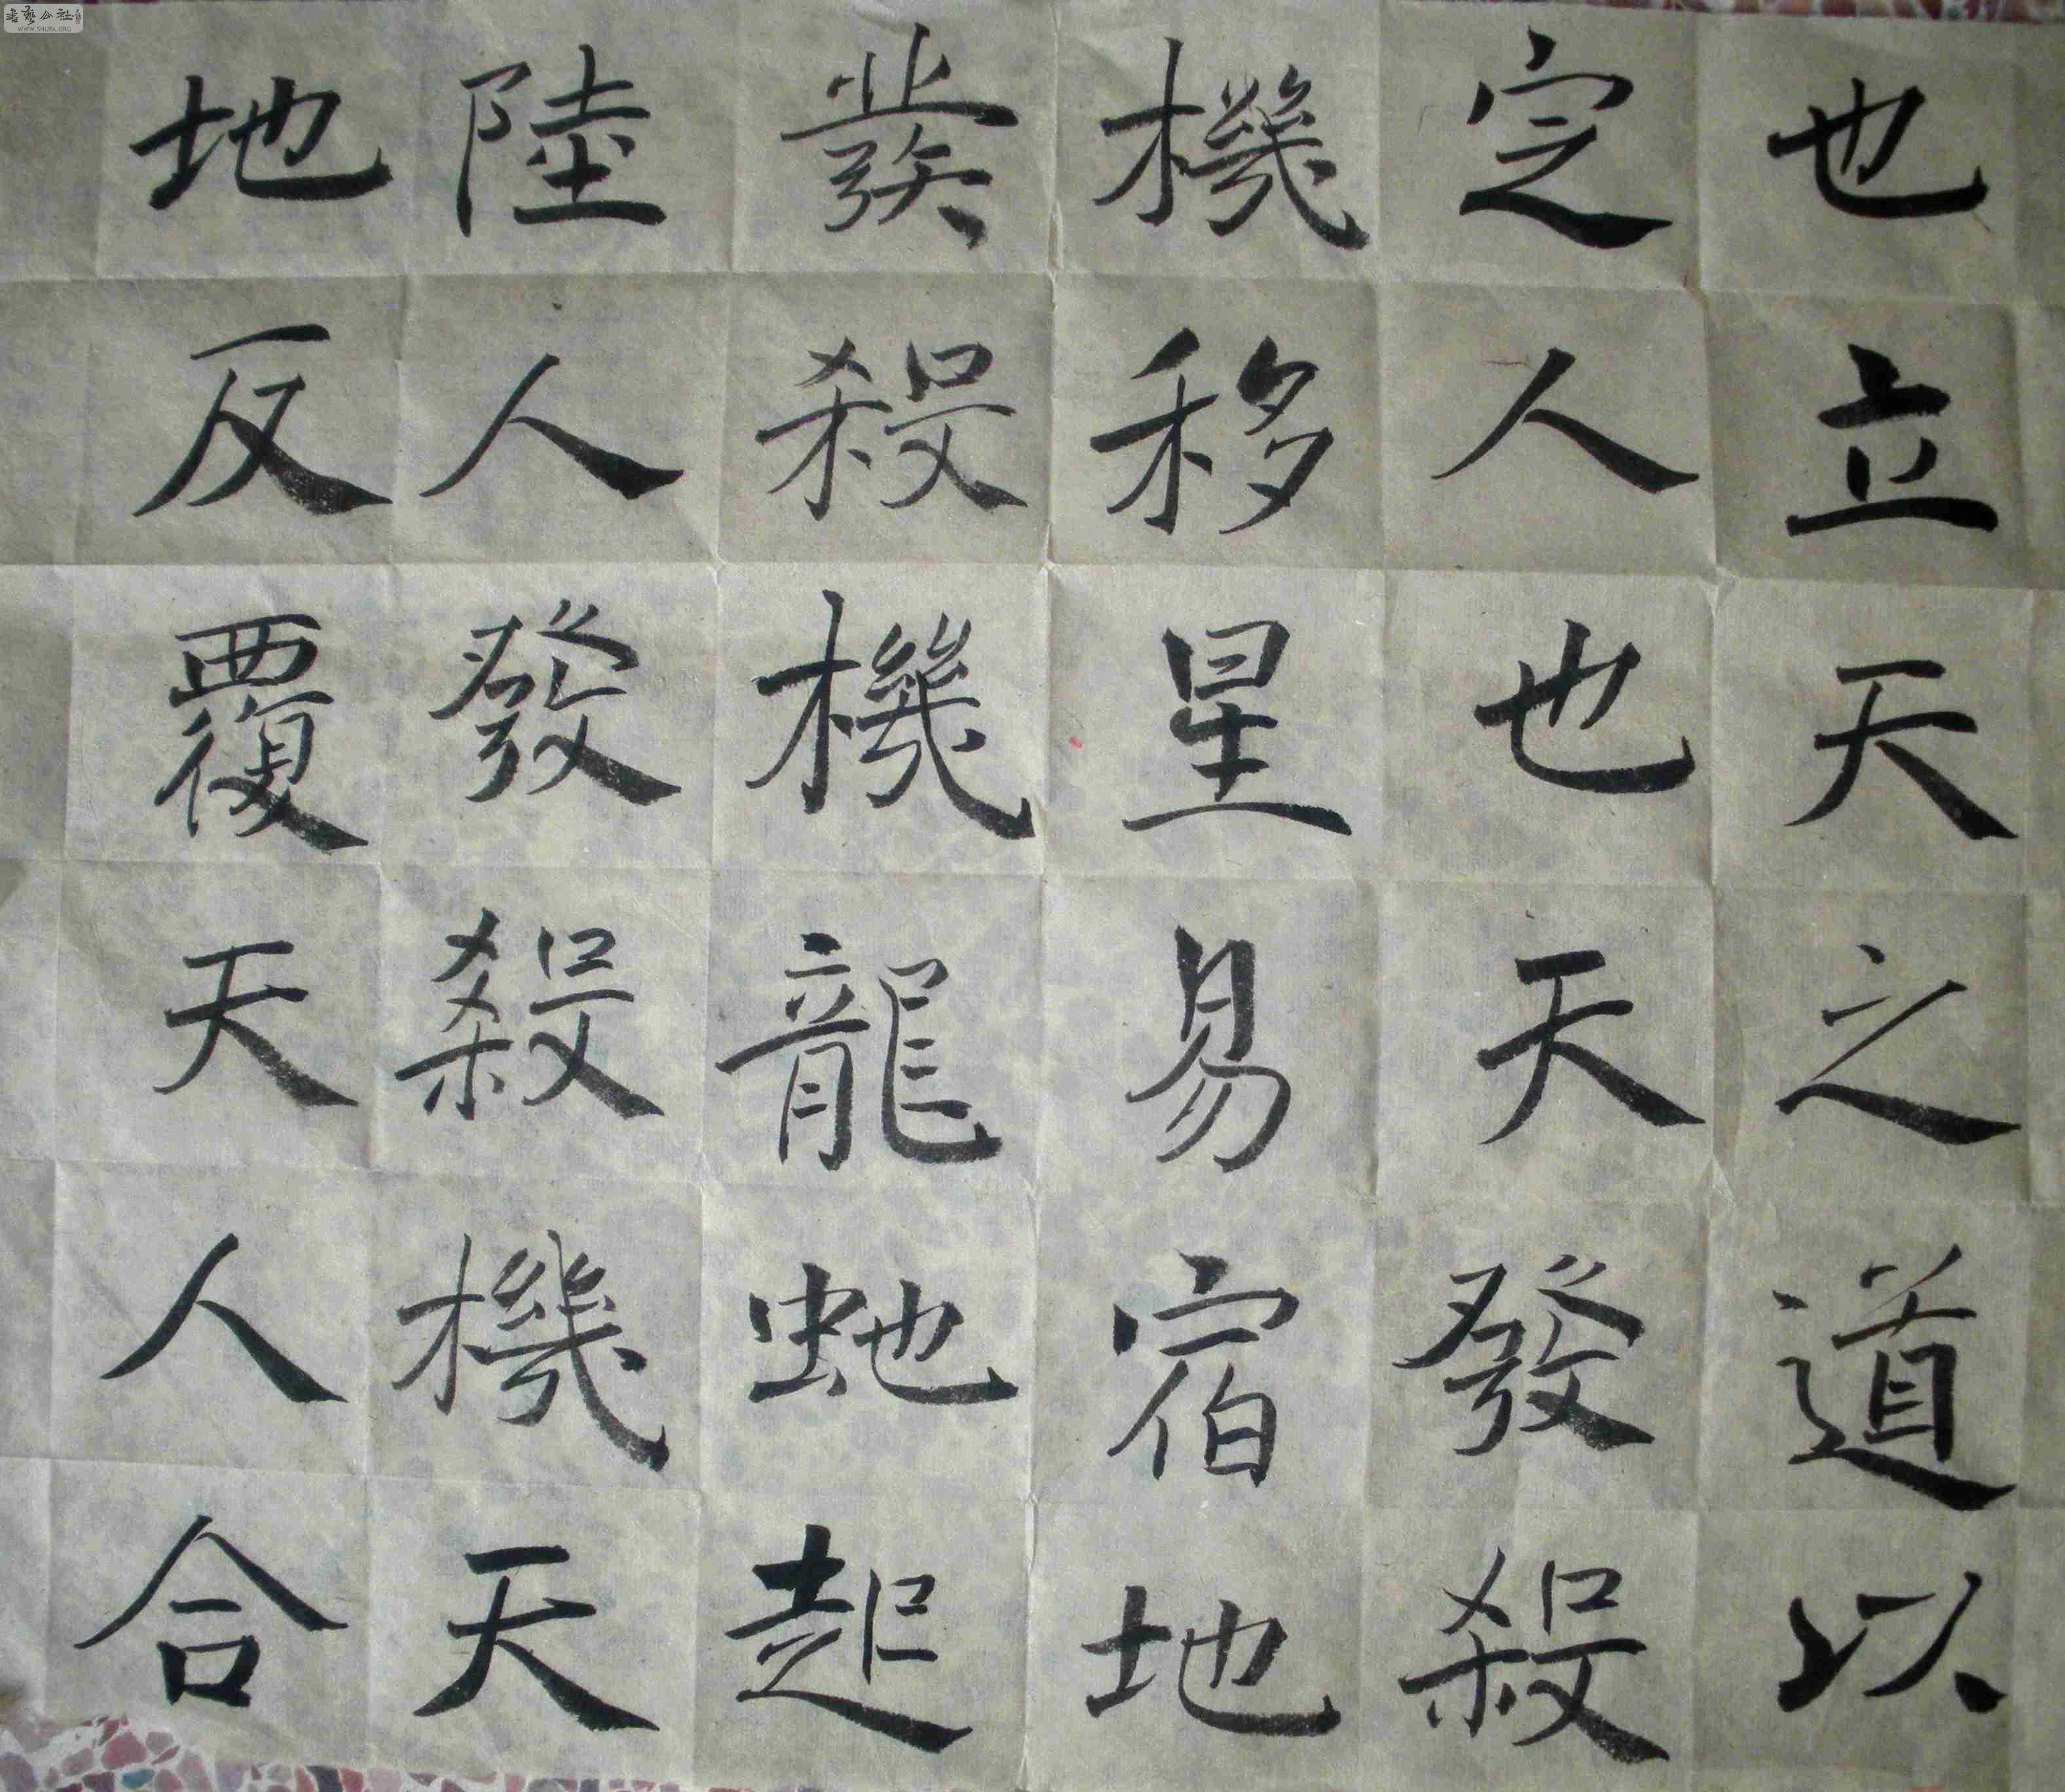 也立天之道以
定人也天發殺
機移星易宿地
發殺機龍虵起
陸人發殺機天
地反覆天人合
書藝公社
WWW.SHUFA.ORG